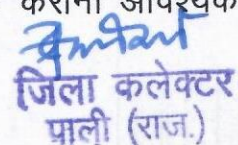 कराना आवश्यक
जिला कलेक्टर
पाली (राज.)